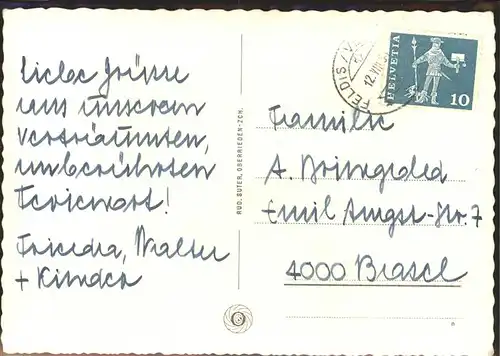 Liebe Grüsse
aus unserem
verträumten,
unberührten
Ferienort!
Frieda, Walter
+ Kinder
RUD. SUTER, OBERRIEDEN-ZCH.
FELDIS/
12.VIII
HELVETIA
10
Familie
A.
Emil Angst-Str. 7
4000 Basel